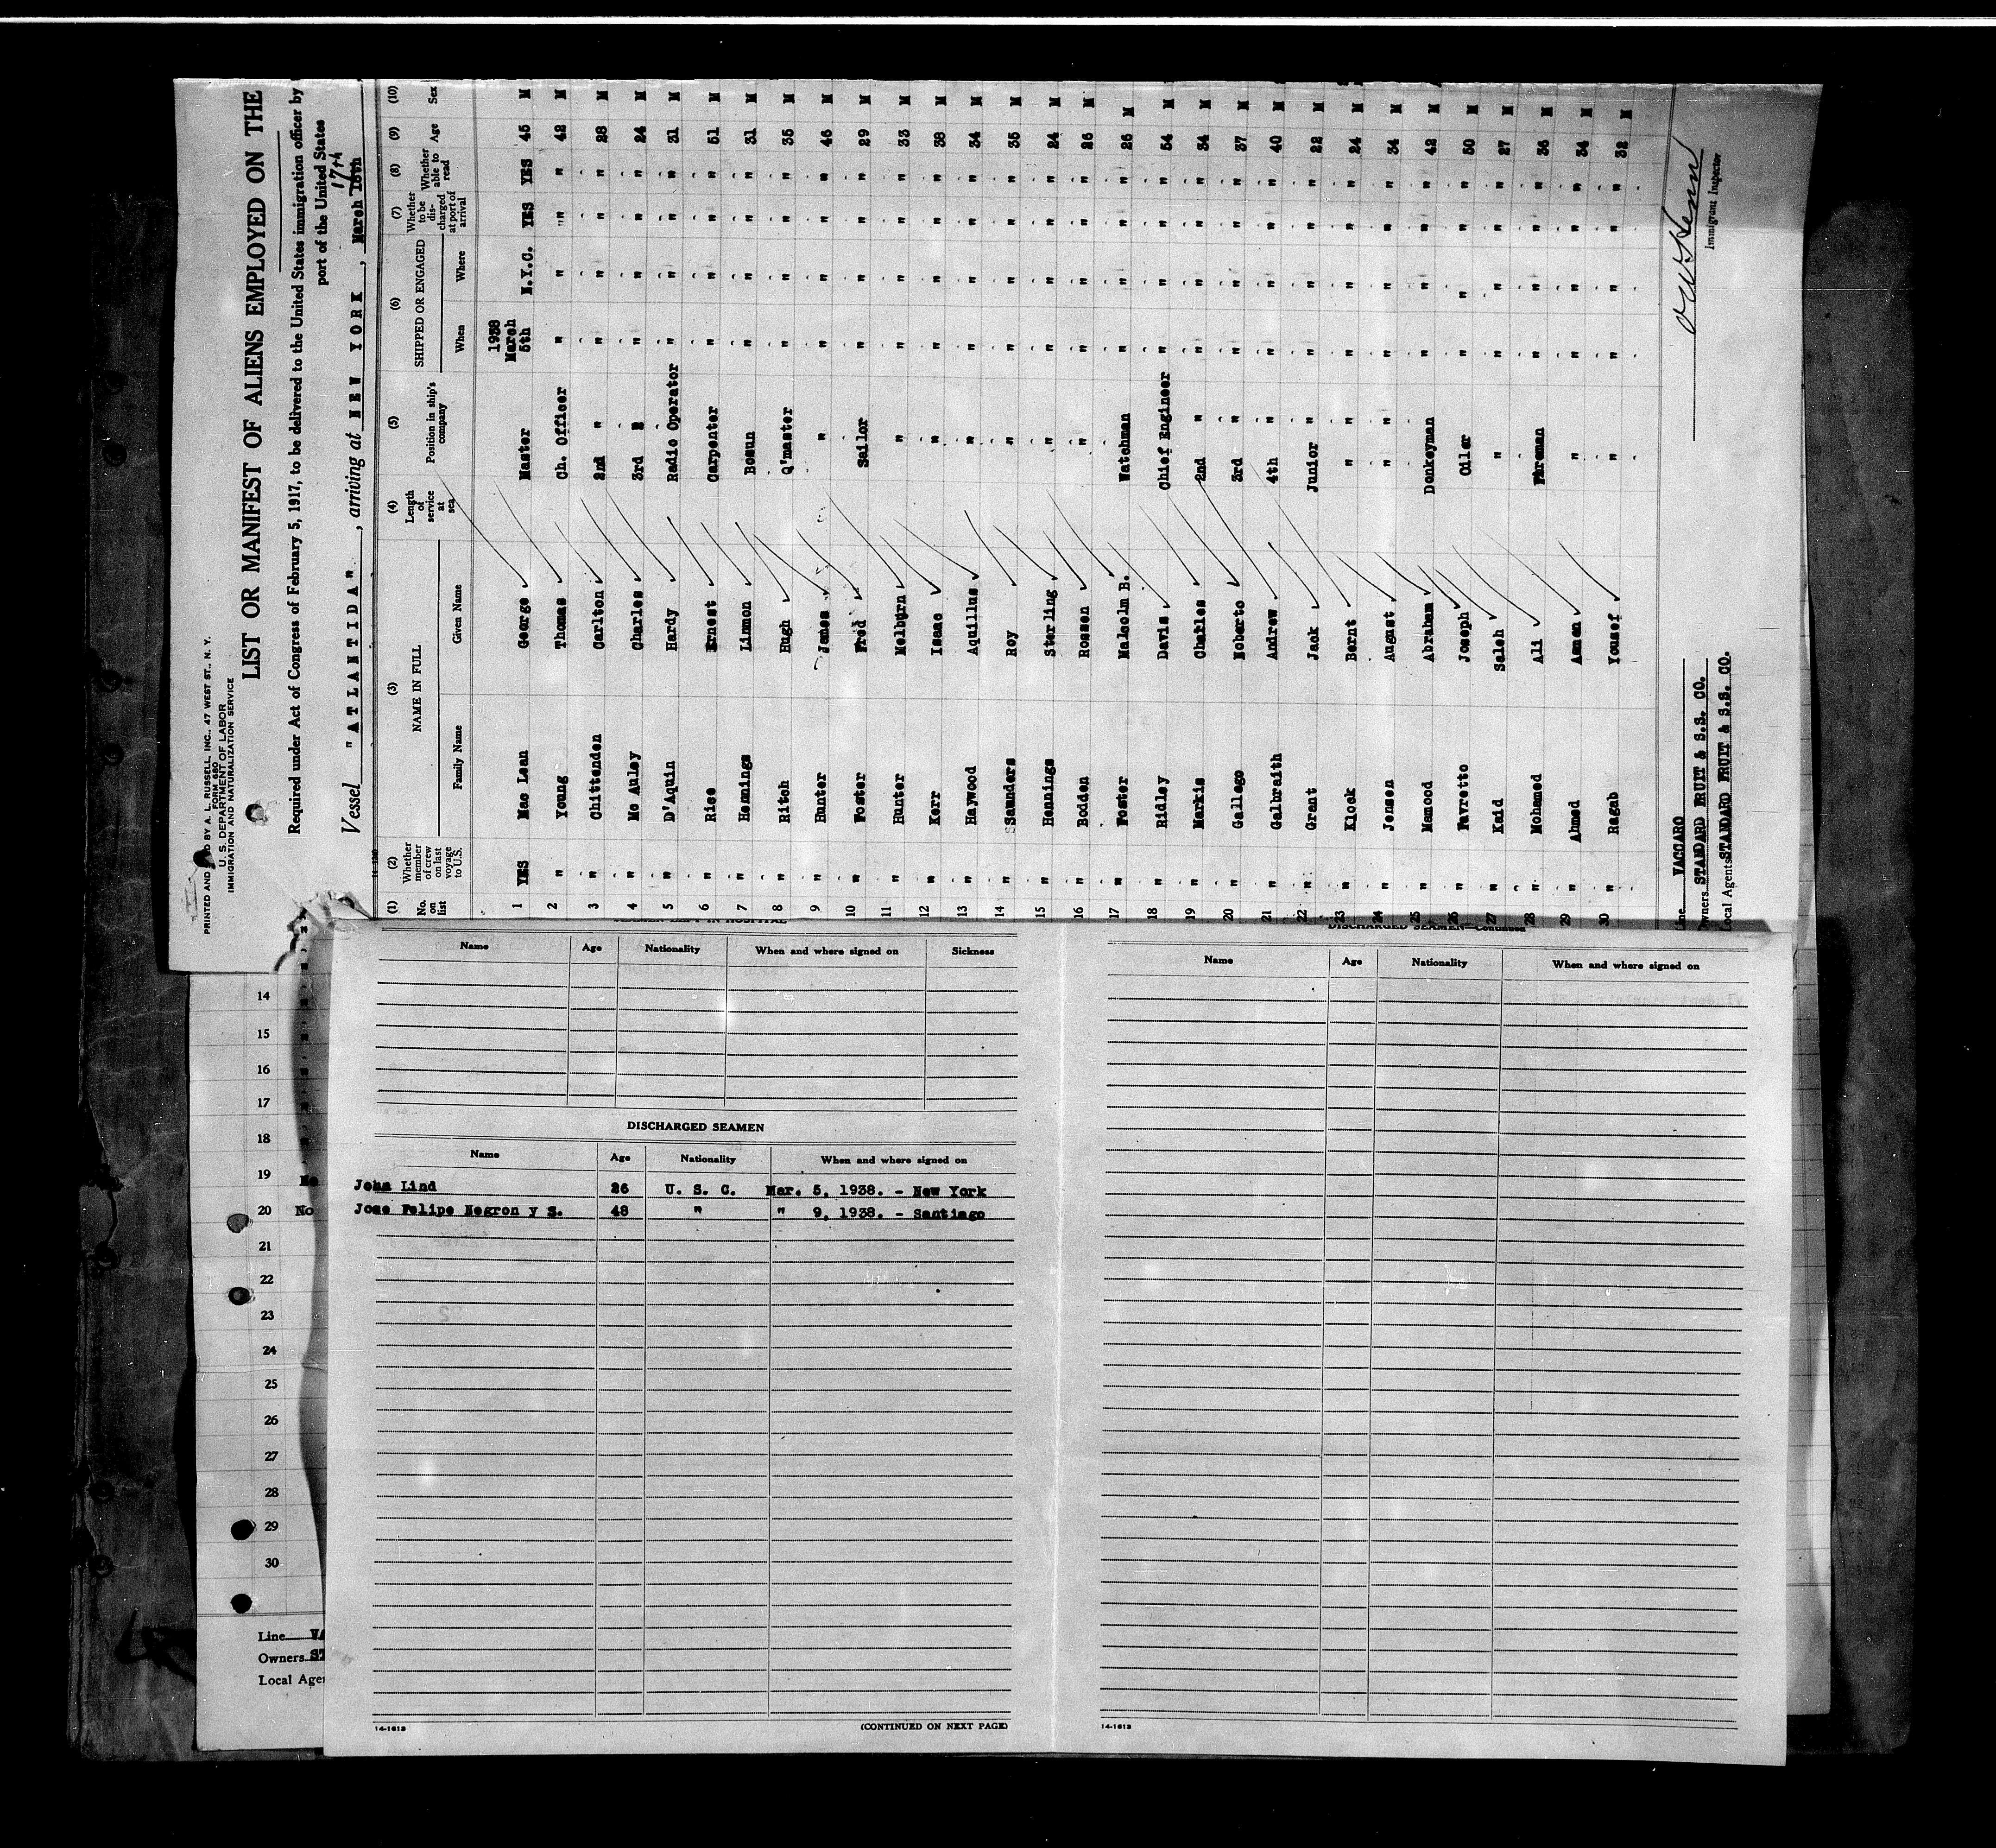 PRINTED AND SOLD BY A. L. RUSSELL, INC., 47 WEST ST., N. Y.
FORM 680
U. S. DEPARTMENT OF LABOR
IMMIGRATION AND NATURALIZATION SERVICE
LIST OR MANIFEST OF ALIENS EMPLOYED ON THE
Required under Act of Congress of February 5, 1917, to be delivered to the United States immigration officer by
port of the United States
17th
Vessel "ATLANTIDA", arriving at NEW YORK, March 18th
(1) (2) (3) (4) (5) (6) (7) (8) (9) (10)
No. on list Whether member of crew on last voyage to U.S. NAME IN FULL Family Name Given Name Length of service at sea Position in ship's company SHIPPED OR ENGAGED When Where Whether to be discharged at port of arrival Whether able to read Age Sex
1 YES Mac Lean George Master 1938 March 5th N.Y.C. YES YES 45 M
2 " Young Thomas Ch. Officer " " " " 42 M
3 " Chittenden Carlton 2nd " " " " " 28 M
4 " Mc Auley Charles 3rd " " " " " 24 M
5 " D'Aquin Hardy Radio Operator " " " " 31 M
6 " Rice Ernest Carpenter " " " " 51 M
7 " Hennings Linmon Bosun " " " " 31 M
8 " Ritch Hugh Q'master " " " " 35 M
9 " Hunter James " " " " " 46 M
10 " Foster Fred Sailor " " " " 29 M
11 " Hunter Melburn " " " " " 33 M
12 " Kerr Isaac " " " " " 38 M
13 " Haywood Aquillus " " " " " 34 M
14 " Saunders Roy " " " " " 35 M
15 " Hennings Sterling " " " " " 24 M
16 " Bodden Rossen " " " " " 26 M
17 " Foster Malcolm B. Watchman " " " " 26 M
18 " Ridley Davis Chief Engineer " " " " 54 M
19 " Markis Charles 2nd " " " " " 34 M
20 " Gallego Noberto 3rd " " " " " 37 M
21 " Galbraith Andrew 4th " " " " " 40 M
22 " Grant Jack Junior " " " " " 22 M
23 " Klock Bernt " " " " " 24 M
24 " Jensen August " " " " " 34 M
25 " Mamood Abraham Donkeyman " " " " 42 M
26 " Favretto Joseph Oiler " " " " 50 M
27 " Kaid Saleh " " " " " 27 M
28 " Mohamed Ali Fireman " " " " 36 M
29 " Ahmed Asmen " " " " " 34 M
30 " Ragab Yousef " " " " " 32 M
Line VACCARO
Owners STANDARD FRUIT & S.S. CO.
Local Agents STANDARD FRUIT & S.S. CO.
Immigrant Inspector
SEAMEN LEFT IN HOSPITAL
Name Age Nationality When and where signed on Sickness
DISCHARGED SEAMEN
Name Age Nationality When and where signed on
John Lind 26 U. S. C. Mar. 5, 1938. - New York
Jose Felipe Negron y S. 48 " " 9, 1938. - Santiago
14-1613
(CONTINUED ON NEXT PAGE)
DISCHARGED SEAMEN—Continued
Name Age Nationality When and where signed on
14-1613
14
15
16
17
18
19
20 No
21
22
23
24
25
26
27
28
29
30
Line VA
Owners ST
Local Age